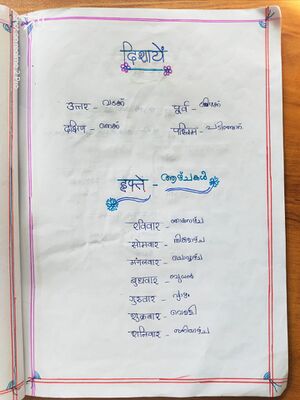 दिशायें
उत्तर - വടക്ക് पूर्व - കിഴക്ക്
दक्षिण - തെക്ക് पश्चिम - പടിഞ്ഞാറ്
हफ्ते - ആഴ്ചകൾ
रविवार - ഞായറാഴ്ച
सोमवार - തിങ്കളാഴ്ച
मंगलवार - ചൊവ്വാഴ്ച
बुधवार - ബുധൻ
गुरुवार - വ്യാഴം
शुक्रवार - വെള്ളി
शनिवार - ശനിയാഴ്ച